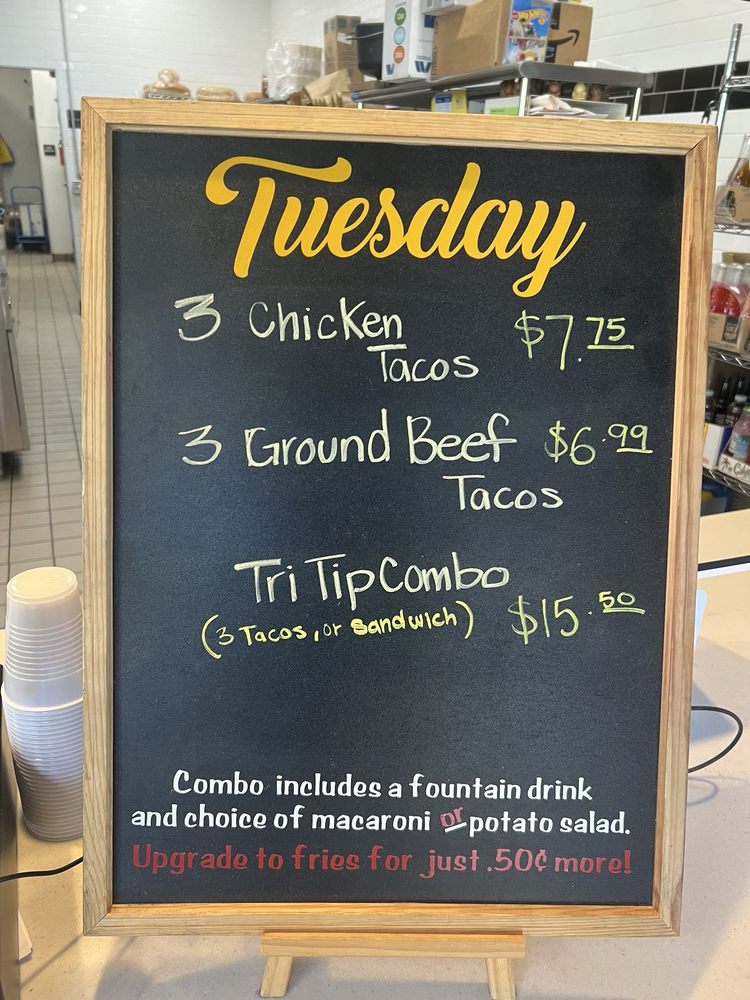 Tuesday
3 Chicken Tacos $7.75
3 Ground Beef Tacos $6.99
Tri Tip Combo
(3 Tacos, or Sandwich) $15.50
Combo includes a fountain drink
and choice of macaroni or potato salad.
Upgrade to fries for just .50¢ more!